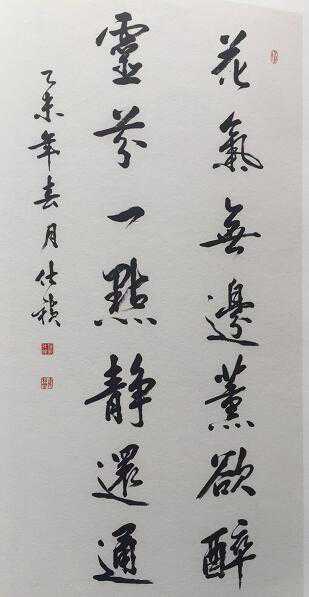 花氣無邊薰欲醉
靈芬一點靜還通
乙未年春月仕稹